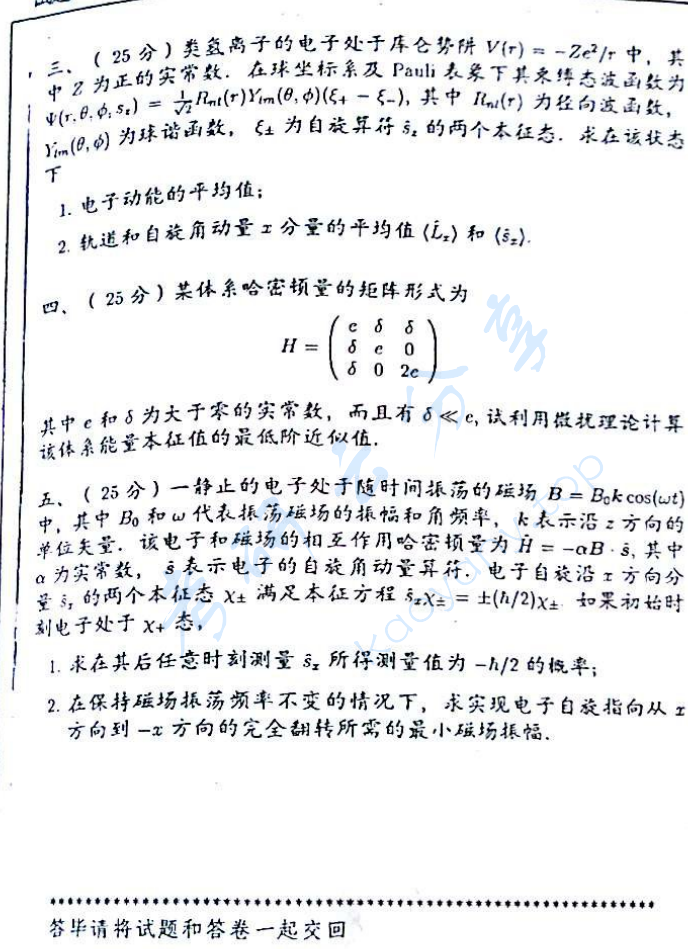 三、（25分）类氢离子的电子处于库仑势阱 V(r) = −Ze²/r 中，其
中 Z 为正的实常数．在球坐标系及 Pauli 表象下其束缚态波函数为
Ψ(r,θ,φ,s_z) = 1/√2 R_nl(r)Y_lm(θ,φ)(ξ₊ − ξ₋), 其中 R_nl(r) 为径向波函数，
Y_lm(θ,φ) 为球谐函数，ξ± 为自旋算符 ŝ_z 的两个本征态．求在该状态
下
1. 电子动能的平均值；
2. 轨道和自旋角动量 x 分量的平均值 ⟨L̂_x⟩ 和 ⟨ŝ_x⟩.
四、（25分）某体系哈密顿量的矩阵形式为
H = ( ε δ δ
δ ε 0
δ 0 2ε )
其中 ε 和 δ 为大于零的实常数，而且有 δ ≪ ε, 试利用微扰理论计算
该体系能量本征值的最低阶近似值．
五、（25分）一静止的电子处于随时间振荡的磁场 B = B₀k cos(ωt)
中，其中 B₀ 和 ω 代表振荡磁场的振幅和角频率，k 表示沿 z 方向的
单位矢量．该电子和磁场的相互作用哈密顿量为 Ĥ = −αB · ŝ, 其中
α 为实常数，ŝ 表示电子的自旋角动量算符．电子自旋沿 x 方向分
量 ŝ_x 的两个本征态 χ± 满足本征方程 ŝ_xχ± = ±(ħ/2)χ±．如果初始时
刻电子处于 χ₊ 态，
1. 求在其后任意时刻测量 ŝ_x 所得测量值为 −ħ/2 的概率；
2. 在保持磁场振荡频率不变的情况下，求实现电子自旋指向从 x
方向到 −x 方向的完全翻转所需的最小磁场振幅．
答毕请将试题和答卷一起交回
kaoyany.top